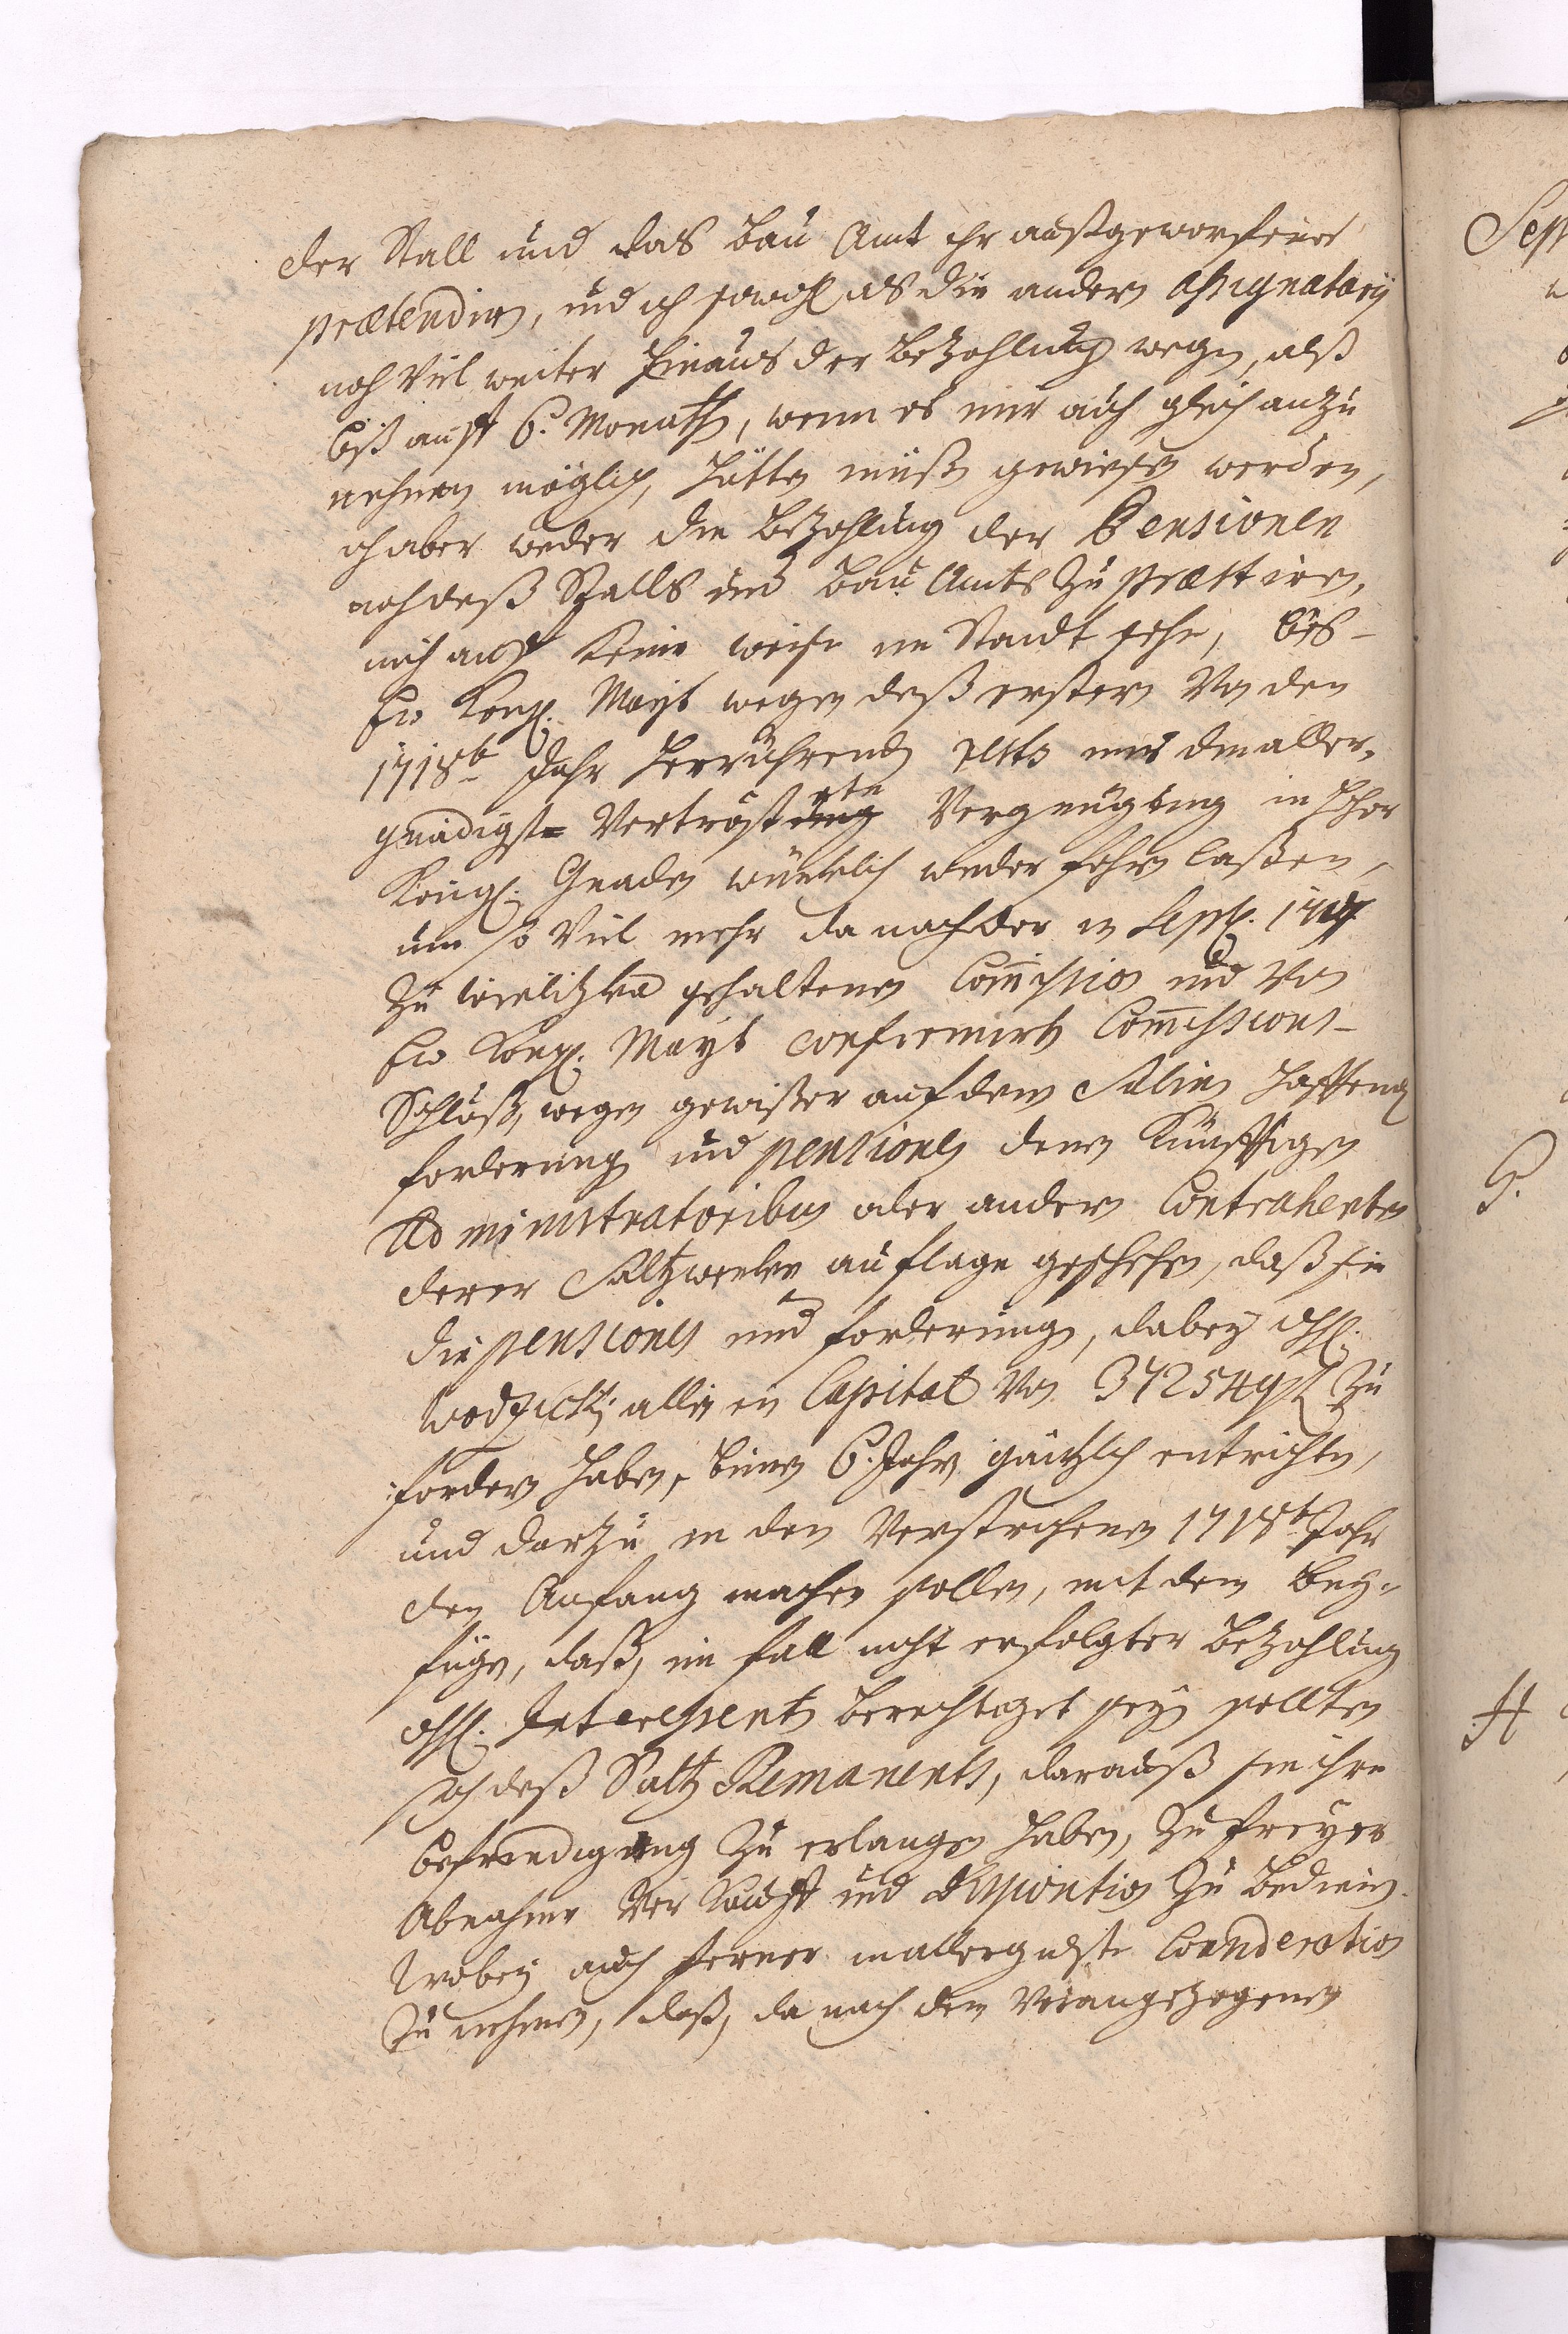 der Stall und das Bau Amt ihr außgeworfenes
prætendiren, und ich sowohl als die andern Assignatarij
noch Viel weiter hinaus der Bezahlung wegen, alß
biß auff 6. Monathe, wenn es mir auch gleich anzu
nehmen möglich, hätten müßen gewiesen werden,
ich aber weder die Bezahlung der Pensionen
noch deß Stalls und Bau Amts zu præstiren,
mich auf keine weise im Standt sehe, biß
Ew Königl. Mayt wegen deß erstern Von den
1718t Jahr herrührenden Rests mir die aller-
gnädigst Vertröstete Vergnügung in Hoher
Königl. Gnaden würcklich wieder fahren laßen,
um so Viel mehr da nach der in Sept. 1717
zu Wielitzka gehaltenen Commission und Von
Ew Königl. Mayt confirmirten Commissions-
Schluß, wegen gewißer auf denen Salinen hafftenden
forderungen und pensiones denen Künfftigen
Administratoribus oder andern Contrahenten
derer Saltzwercke auflage geschehen, daß sie
die pensiones und forderungen, dabey
Wodzicky allein ein Capital Von 37254 zu
fordern haben, binnen 6. Jahren gäntzlich entrichten,
und darzu in den Verstrichenen 1718t Jahr
den Anfang machen sollen, mit dem Bey-
fügen, daß, im fall nicht erfolgter Bezahlung
Interessenten berechtiget seyn sollten
sich deß Saltz Remanents, darauß sie ihre
befriedigung zu erlangen haben, zu freyer
Abnahme Verkauff und Disposition zu bedienen.
Wobey auch ferner in allergndste Consideration
zu nehmen, daß, da nach dem Vorangezogenen
Sept
G.
H